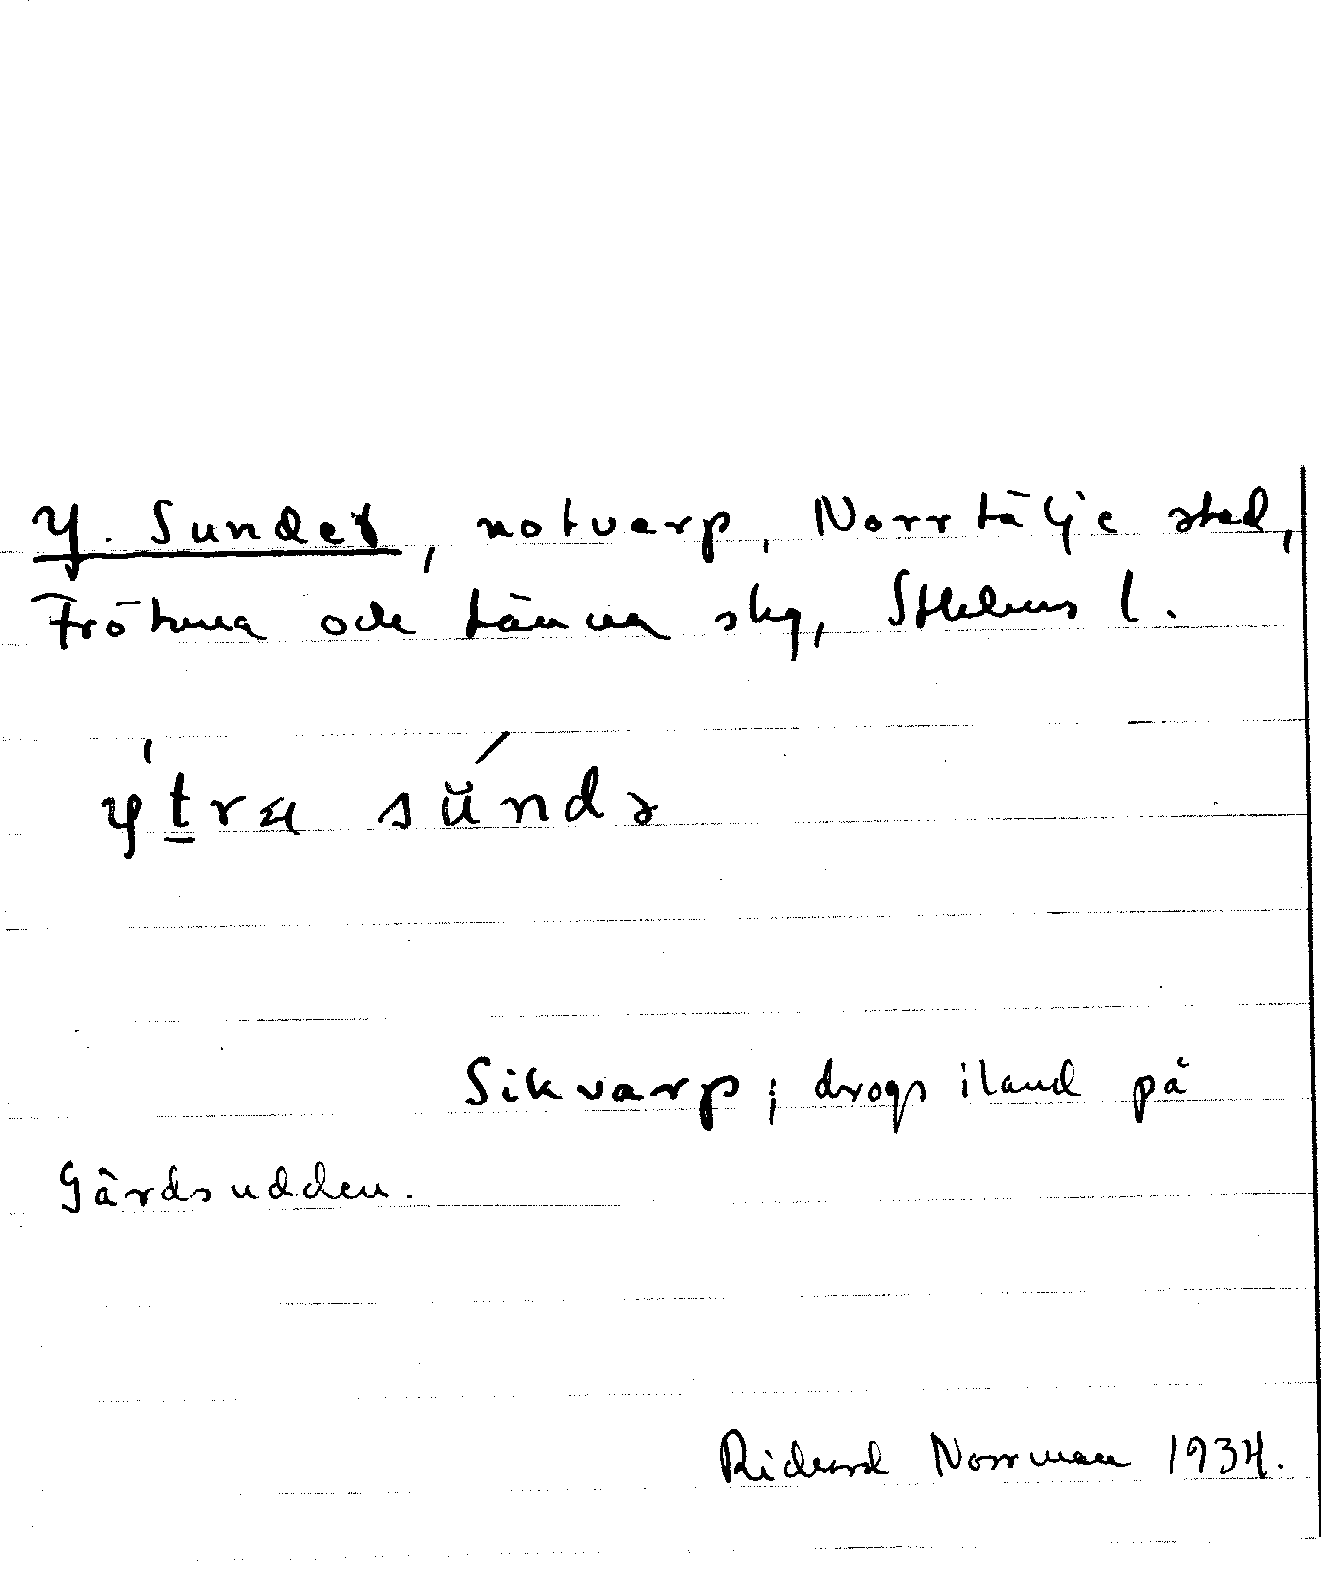 Y. Sundet, notvarp, Norrtälje stad,
Frötuna och Länna skg, Sthlms l.
y̍t̲ra sŭ́ndə
Sikvarp; drogs iland på
Gärdsudden.
Richard Norrman 1934.